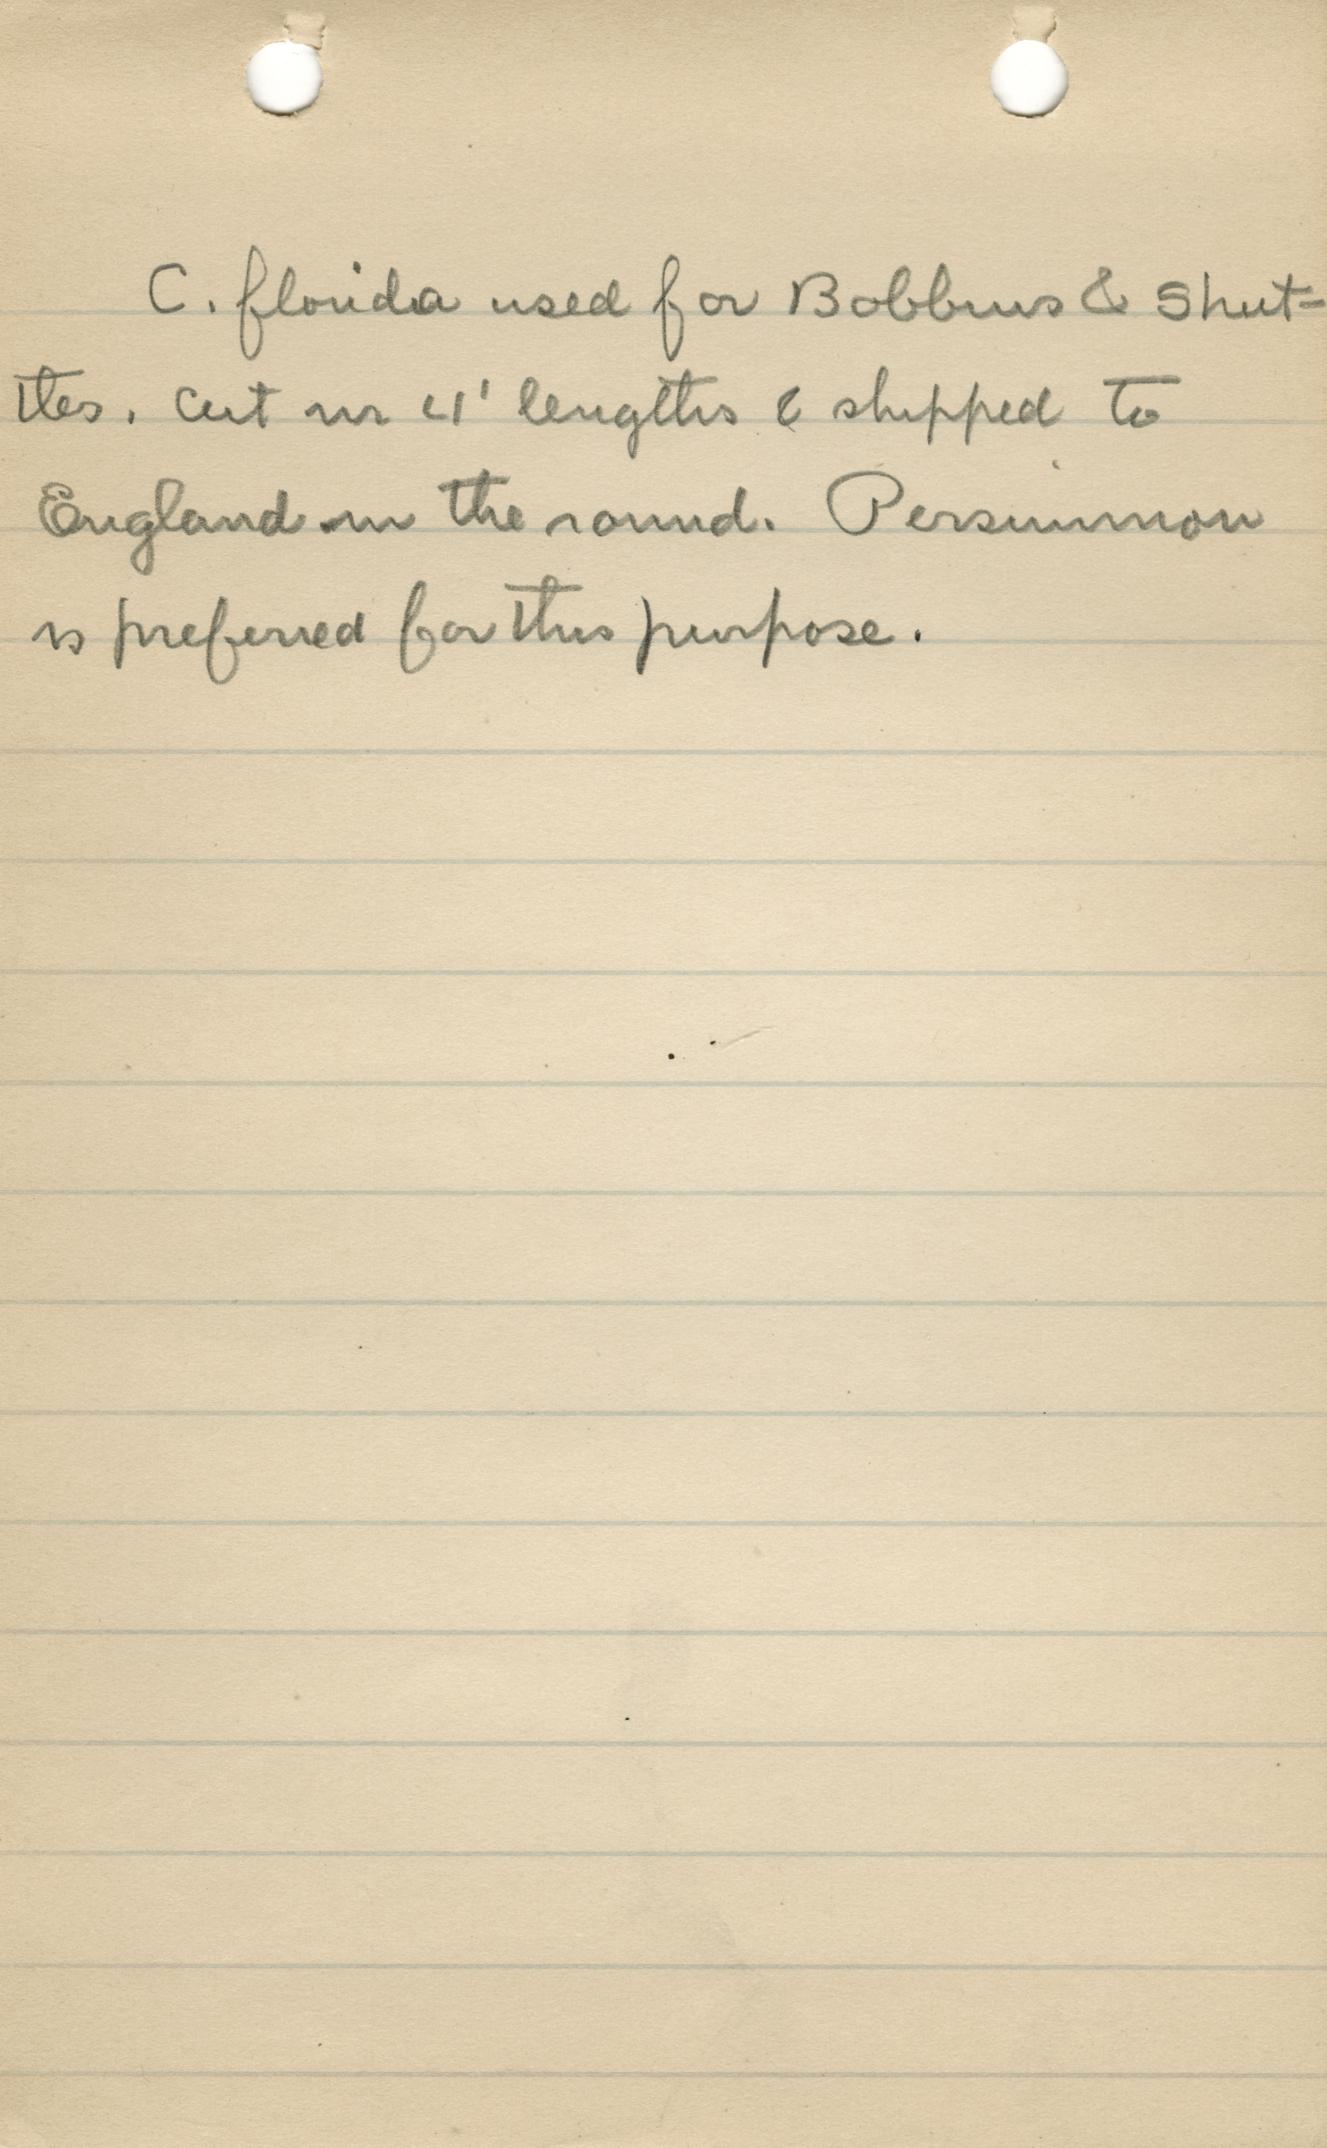 C. florida used for Bobbins & Shut=
tles. Cut in 4' lengths & shipped to
England in the round. Persimmon
is preferred for this purpose.